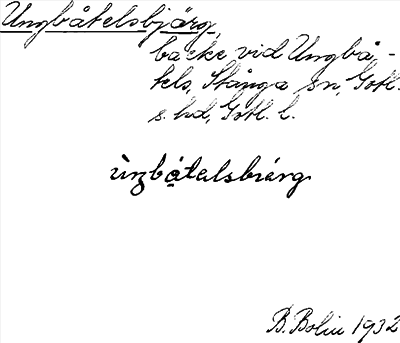 Ungbåtelsbjärg,
backe vid Ungbå-
tels, Stånga sn, Gotl.
s. hd, Gotl. l.
ùŋbátəlsbiérg
B. Bolin 1932